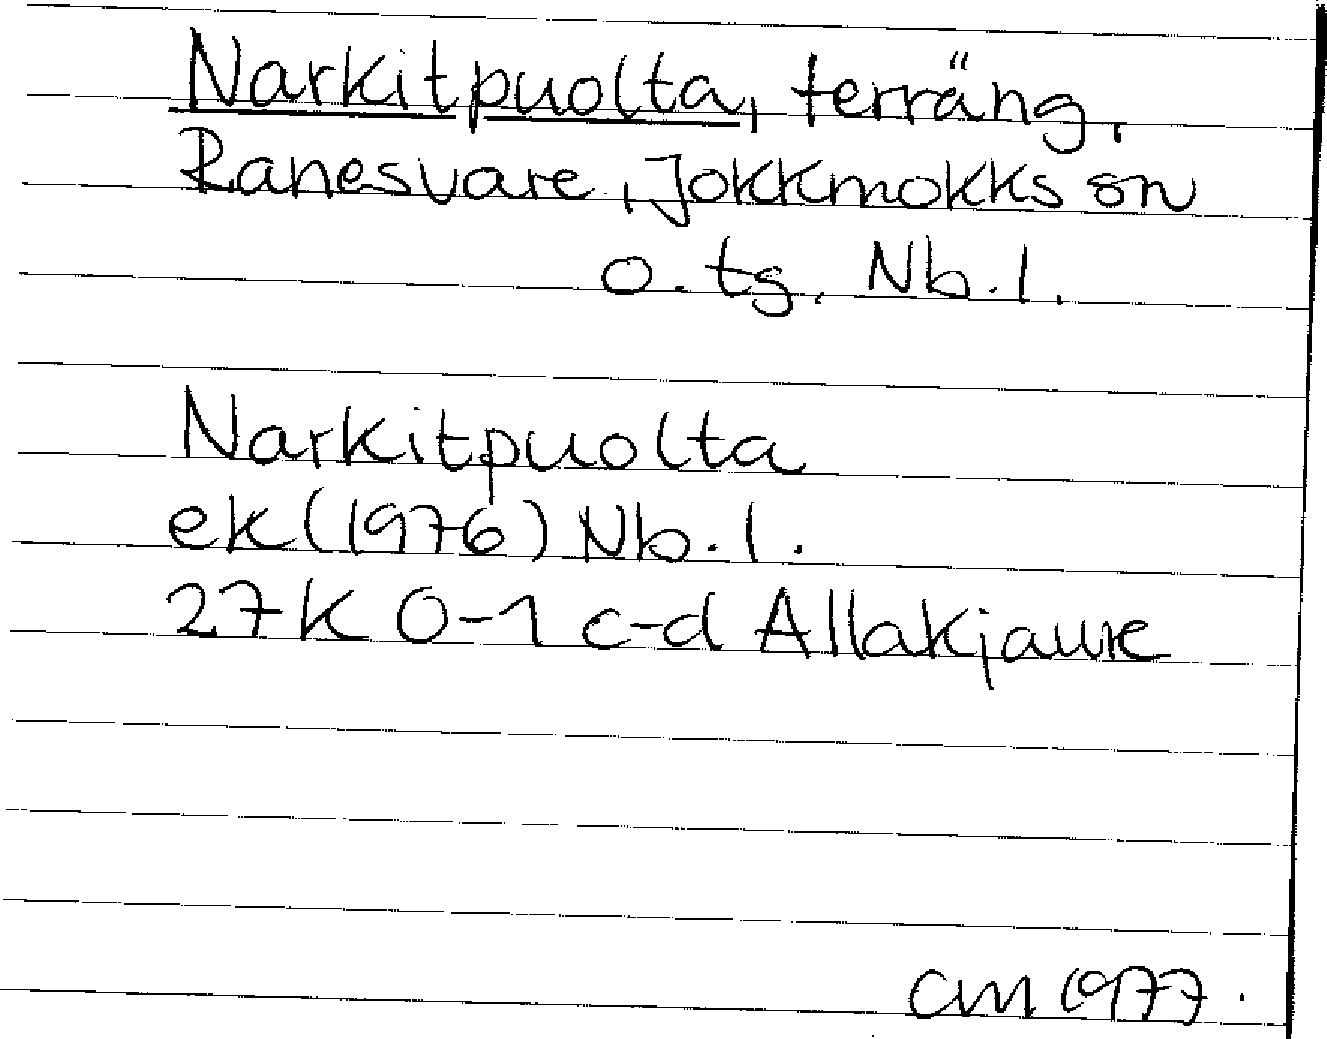 Narkitpuolta, terräng,
Ranesvare, Jokkmokks sn
o. tg. Nb. l.
Narkitpuolta
ek (1976) Nb. l.
27K 0-1 c-d Allakjaure
CM 1977.